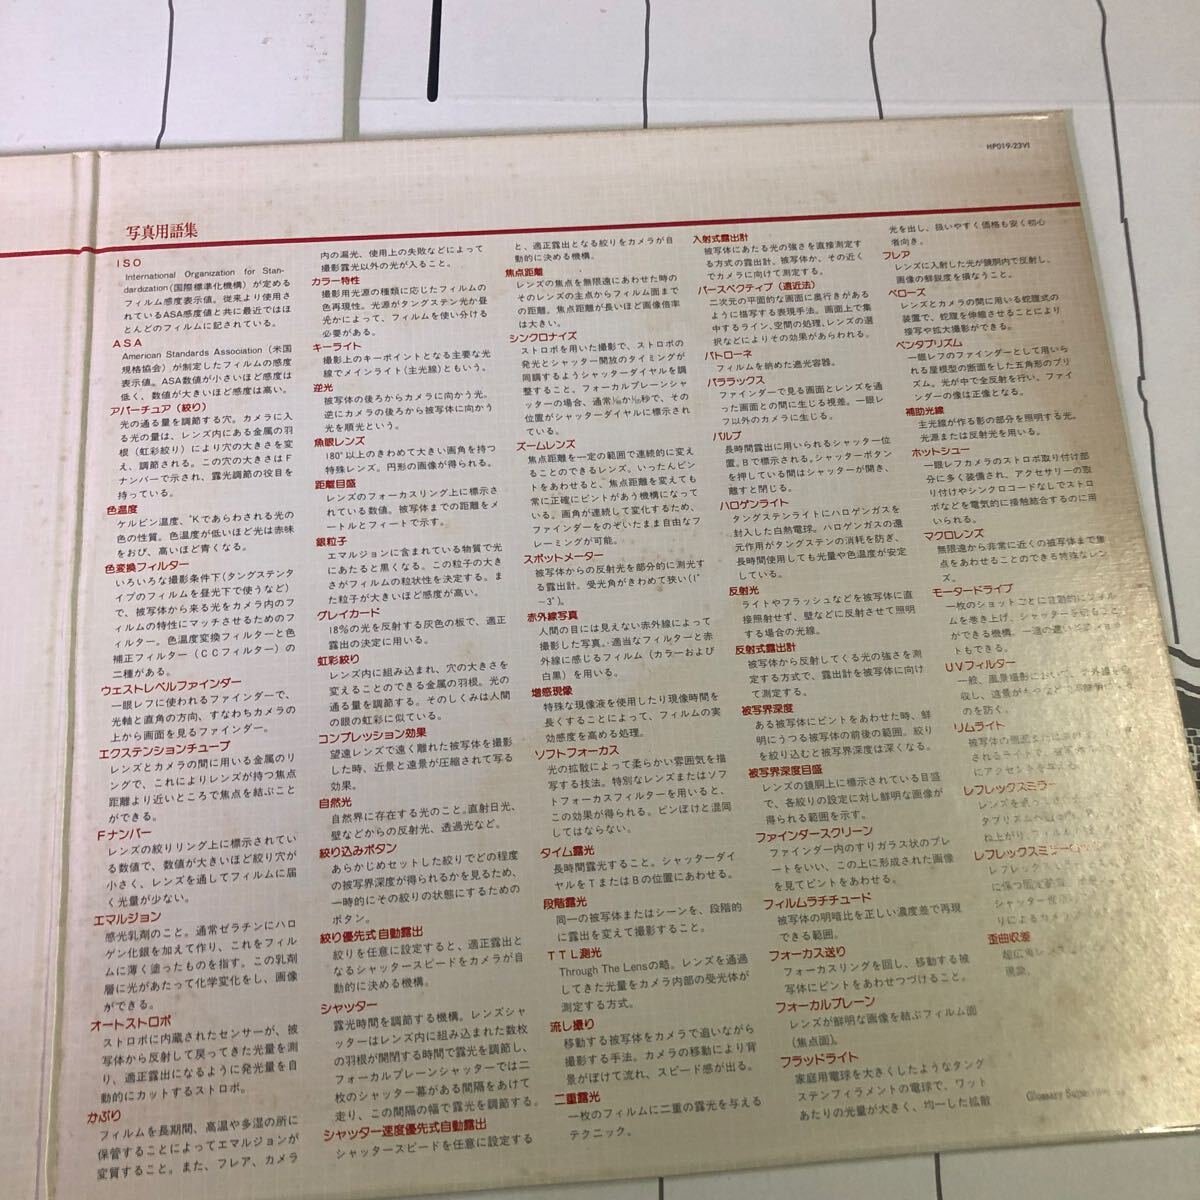 HP019-23VI
写真用語集
ISO
International Organization for Stan-
dardization(国際標準化機構)が定める
フィルム感度表示値。従来より使用さ
れているASA感度値と共に最近ではほ
とんどのフィルムに記されている。
ASA
American Standards Association(米国
規格協会)が制定したフィルムの感度
表示値。ASA数値が小さいほど感度は
低く、数値が大きいほど感度は高い。
アパーチュア(絞り)
光の通る量を調節する穴。カメラに入
る光の量は、レンズ内にある金属の羽
根(虹彩絞り)により穴の大きさを変
え、調節される。この穴の大きさはF
ナンバーで示され、露光調節の役目を
持っている。
色温度
ケルビン温度、°Kであらわされる光の
色の性質。色温度が低いほど光は赤味
をおび、高いほど青くなる。
色変換フィルター
いろいろな撮影条件下(タングステンタ
イプのフィルムを昼光下で使うなど)
で、被写体から来る光をカメラ内のフ
ィルムの特性にマッチさせるためのフ
ィルター。色温度変換フィルターと色
補正フィルター(CCフィルター)の
二種がある。
ウエストレベルファインダー
一眼レフに使われるファインダーで、
光軸と直角の方向、すなわちカメラの
上から画面を見るファインダー。
エクステンションチューブ
レンズとカメラの間に用いる金属のリ
ングで、これによりレンズが持つ焦点
距離より近いところで焦点を結ぶこと
ができる。
Fナンバー
レンズの絞りリング上に標示されてい
る数値で、数値が大きいほど絞り穴が
小さく、レンズを通してフィルムに届
く光量が少ない。
エマルジョン
感光乳剤のこと。通常ゼラチンにハロ
ゲン化銀を加えて作り、これをフィル
ムに薄く塗ったものを指す。この乳剤
層に光があたって化学変化をし、画像
ができる。
オートストロボ
ストロボに内蔵されたセンサーが、被
写体から反射して戻ってきた光量を測
り、適正露出になるように発光量を自
動的にカットするストロボ。
かぶり
フィルムを長期間、高温や多湿の所に
保管することによってエマルジョンが
変質すること。また、フレア、カメラ
内の漏光、使用上の失敗などによって
撮影露光以外の光が入ること。
カラー特性
撮影用光源の種類に応じたフィルムの
色再現性。光源がタングステン光か昼
光かによって、フィルムを使い分ける
必要がある。
キーライト
撮影上のキーポイントとなる主要な光
線でメインライト(主光線)ともいう。
逆光
被写体の後ろからカメラに向かう光。
逆にカメラの後ろから被写体に向かう
光を順光という。
魚眼レンズ
180°以上のきわめて大きい画角を持つ
特殊レンズ。円形の画像が得られる。
距離目盛
レンズのフォーカスリング上に標示さ
れている数値。被写体までの距離をメ
ートルとフィートで示す。
銀粒子
エマルジョンに含まれている物質で光
にあたると黒くなる。この粒子の大き
さがフィルムの粒状性を決定する。ま
た粒子が大きいほど感度が高い。
グレイカード
18%の光を反射する灰色の板で、適正
露出の決定に用いる。
虹彩絞り
レンズ内に組み込まれ、穴の大きさを
変えることのできる金属の羽根。光の
通る量を調節する。そのしくみは人間
の眼の虹彩に似ている。
コンプレッション効果
望遠レンズで遠く離れた被写体を撮影
した時、近景と遠景が圧縮されて写る
効果。
自然光
自然界に存在する光のこと。直射日光、
壁などからの反射光、透過光など。
絞り込みボタン
あらかじめセットした絞りでどの程度
の被写界深度が得られるかを見るため、
一時的にその絞りの状態にするための
ボタン。
絞り優先式自動露出
絞りを任意に設定すると、適正露出と
なるシャッタースピードをカメラが自
動的に決める機構。
シャッター
露光時間を調節する機構。レンズシャ
ッターはレンズ内に組み込まれた数枚
の羽根が開閉する時間で露光を調節し、
フォーカルプレーンシャッターでは二
枚のシャッター幕がある間隔をあけて
走り、この間隔の幅で露光を調節する。
シャッター速度優先式自動露出
シャッタースピードを任意に設定する
と、適正露出となる絞りをカメラが自
動的に決める機構。
焦点距離
レンズの焦点を無限遠にあわせた時の
そのレンズの主点からフィルム面まで
の距離。焦点距離が長いほど画像倍率
は大きい。
シンクロナイズ
ストロボを用いた撮影で、ストロボの
発光とシャッター開放のタイミングが
同調するようシャッターダイヤルを調
整すること。フォーカルプレーンシャ
ッターの場合、通常1/60か1/125秒で、その
位置がシャッターダイヤルに標示され
ている。
ズームレンズ
焦点距離を一定の範囲で連続的に変え
ることのできるレンズ。いったんピン
トをあわせると、焦点距離を変えても
常に正確にピントがあう機構になって
いる。画角が連続して変化するため、
ファインダーをのぞいたまま自由なフ
レーミングが可能。
スポットメーター
被写体からの反射光を部分的に測光す
る露出計。受光角がきわめて狭い(1°
~3°)。
赤外線写真
人間の目には見えない赤外線によって
撮影した写真。適当なフィルターと赤
外線に感じるフィルム(カラーおよび
白黒)を用いる。
増感現像
特殊な現像液を使用したり現像時間を
長くすることによって、フィルムの実
効感度を高める処理。
ソフトフォーカス
光の拡散によって柔らかい雰囲気を描
写する技法。特別なレンズまたはソフ
トフォーカスフィルターを用いると、
この効果が得られる。ピンぼけと混同
してはならない。
タイム露光
長時間露光すること。シャッターダイ
ヤルをTまたはBの位置にあわせる。
段階露光
同一の被写体またはシーンを、段階的
に露出を変えて撮影すること。
TTL測光
Through The Lensの略。レンズを通過
してきた光量をカメラ内部の受光体が
測定する方式。
流し撮り
移動する被写体をカメラで追いながら
撮影する手法。カメラの移動により背
景がぼけて流れ、スピード感が出る。
二重露光
一枚のフィルムに二重の露光を与える
テクニック。
入射式露出計
被写体にあたる光の強さを直接測定す
る方式の露出計。被写体か、その近く
でカメラに向けて測定する。
パースペクティブ(遠近法)
二次元の平面的な画面に奥行きがある
ように描写する表現手法。画面上で集
中するライン、空間の処理、レンズの選
択などによりその効果があらわれる。
パトローネ
フィルムを納めた遮光容器。
パララックス
ファインダーで見る画面とレンズを通
った画面との間に生じる視差。一眼レ
フ以外のカメラに生じる。
バルブ
長時間露出に用いられるシャッター位
置。Bで標示される。シャッターボタン
を押している間はシャッターが開き、
離すと閉じる。
ハロゲンライト
タングステンライトにハロゲンガスを
封入した白熱電球。ハロゲンガスの還
元作用がタングステンの消耗を防ぎ、
長時間使用しても光量や色温度が安定
している。
反射光
ライトやフラッシュなどを被写体に直
接照射せず、壁などに反射させて照明
する場合の光線。
反射式露出計
被写体から反射してくる光の強さを測
定する方式で、露出計を被写体に向け
て測定する。
被写界深度
ある被写体にピントをあわせた時、鮮
明にうつる被写体の前後の範囲。絞り
を絞り込むと被写界深度は深くなる。
被写界深度目盛
レンズの鏡胴上に標示されている目盛
で、各絞りの設定に対し鮮明な画像が
得られる範囲を示す。
ファインダースクリーン
ファインダー内のすりガラス状のプレ
ートをいい、この上に形成された画像
を見てピントをあわせる。
フィルムラチチュード
被写体の明暗比を正しい濃度差で再現
できる範囲。
フォーカス送り
フォーカスリングを回し、移動する被
写体にピントをあわせつづけること。
フォーカルプレーン
レンズが鮮明な画像を結ぶフィルム面
(焦点面)。
フラッドライト
家庭用電球を大きくしたようなタング
ステンフィラメントの電球で、ワット
あたりの光量が大きく、均一した拡散
光を出し、扱いやすく価格も安く初心
者向き。
フレア
レンズに入射した光が鏡胴内で反射し、
画像の鮮鋭度を損なうこと。
ベローズ
レンズとカメラの間に用いる蛇腹式の
装置で、蛇腹を伸縮させることにより
接写や拡大撮影ができる。
ペンタプリズム
一眼レフのファインダーとして用いら
れる屋根型の断面をした五角形のプリ
ズム。光が中で全反射を行い、ファイ
ンダーの像は正像となる。
補助光線
主光線が作る影の部分を照明する光。
光源または反射光を用いる。
ホットシュー
一眼レフカメラのストロボ取り付け部
分に多く装備され、アクセサリーの取
り付けやシンクロコードなしでストロ
ボなどを電気的に接触結合するのに用
いられる。
マクロレンズ
無限遠から非常に近くの被写体まで焦
点をあわせることのできる特殊なレン
ズ。
モータードライブ
一枚のショットごとに自動的にフィル
ムを巻き上げ、シャッターを切ること
ができる機構。一連の速い
トもできる。
UVフィルター
一般、風景撮影において、
収し、遠景が
のを防ぐ。
リムライト
被写体の
されるライトで、
にアクセントを与える。
レフレックスミラー
レンズを
タプリズム
ね上がり、フィルム
レフレックスミラー
レフレックス
に保つ
シャッター
りによるカメラ
歪曲収差
超広角レンズ
現象。
Glossary